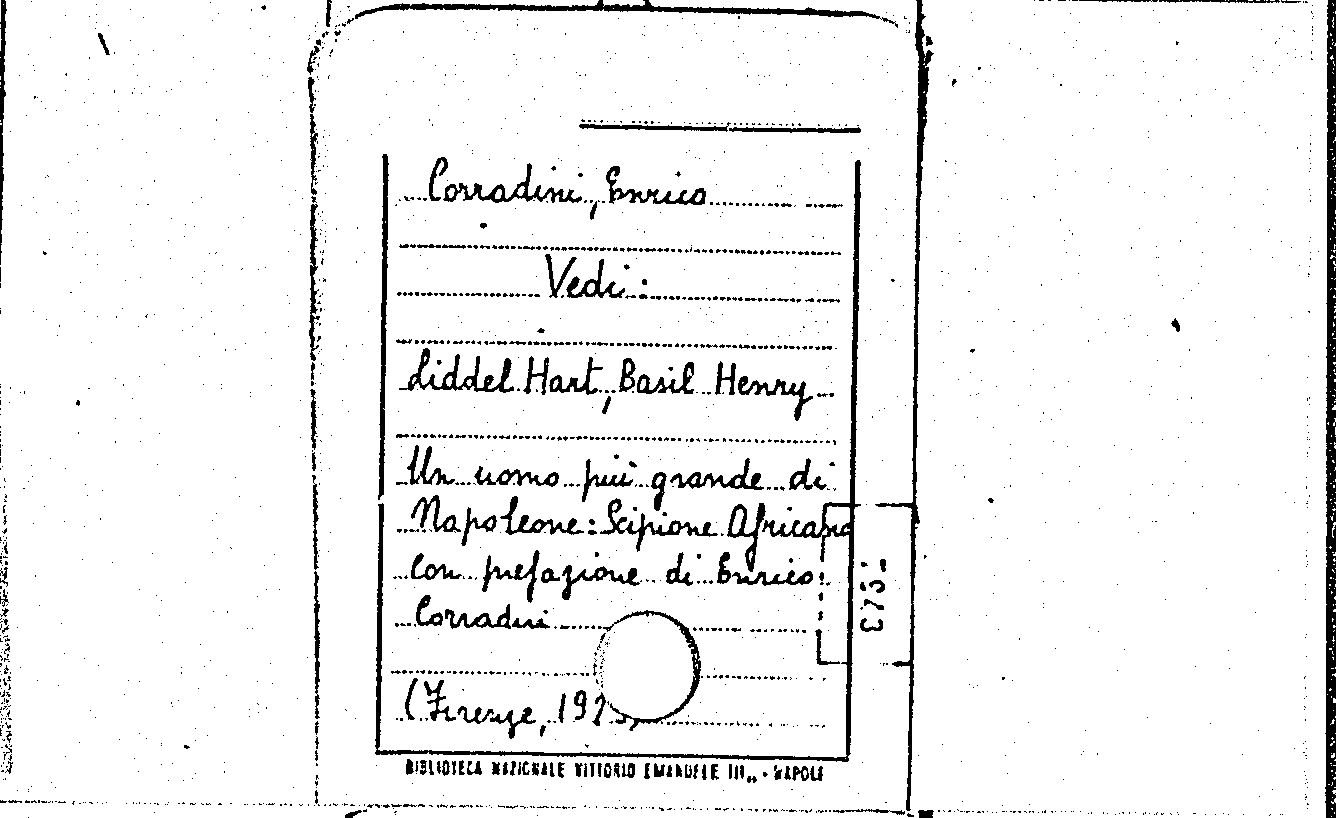 Corradini, Enrico
Vedi:
Liddel Hart, Basil Henry
Un uomo più grande di
Napoleone: Scipione Africano
con prefazione di Enrico
Corradini
(Firenze,
BIBLIOTECA NAZIONALE VITTORIO EMANUELE III„ - NAPOLI